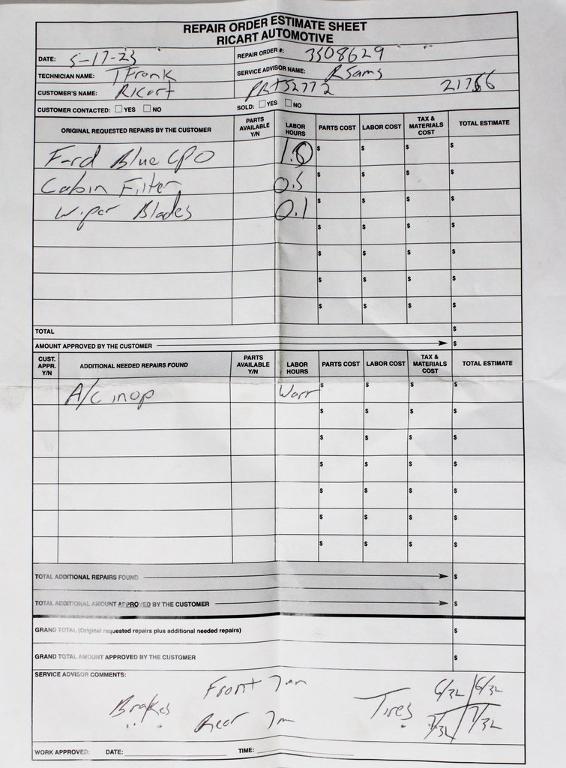 REPAIR ORDER ESTIMATE SHEET
RICART AUTOMOTIVE
DATE: 5-17-23 REPAIR ORDER #: 3508629
TECHNICIAN NAME: TFronk SERVICE ADVISOR NAME: RSams
CUSTOMER'S NAME: Ricart PRTS2772 21766
CUSTOMER CONTACTED: YES NO SOLD: YES NO
ORIGINAL REQUESTED REPAIRS BY THE CUSTOMER PARTS AVAILABLE Y/N LABOR HOURS PARTS COST LABOR COST TAX & MATERIALS COST TOTAL ESTIMATE
Ford Blue CPO 1.0 $ $ $ $
Cabin Filter 0.5 $ $ $ $
Wiper Blades 0.1 $ $ $ $
$ $ $ $
$ $ $ $
$ $ $ $
$ $ $ $
TOTAL $
AMOUNT APPROVED BY THE CUSTOMER $
CUST. APPR. Y/N ADDITIONAL NEEDED REPAIRS FOUND PARTS AVAILABLE Y/N LABOR HOURS PARTS COST LABOR COST TAX & MATERIALS COST TOTAL ESTIMATE
A/C inop Warr $ $ $ $
$ $ $ $
$ $ $ $
$ $ $ $
$ $ $ $
$ $ $ $
$ $ $ $
TOTAL ADDITIONAL REPAIRS FOUND $
TOTAL ADDITIONAL AMOUNT APPROVED BY THE CUSTOMER $
GRAND TOTAL (Original requested repairs plus additional needed repairs) $
GRAND TOTAL AMOUNT APPROVED BY THE CUSTOMER $
SERVICE ADVISOR COMMENTS:
Brakes Front 7mm Tires 6/32 6/32
Rear 7m 7/32 7/32
WORK APPROVED: DATE: TIME: